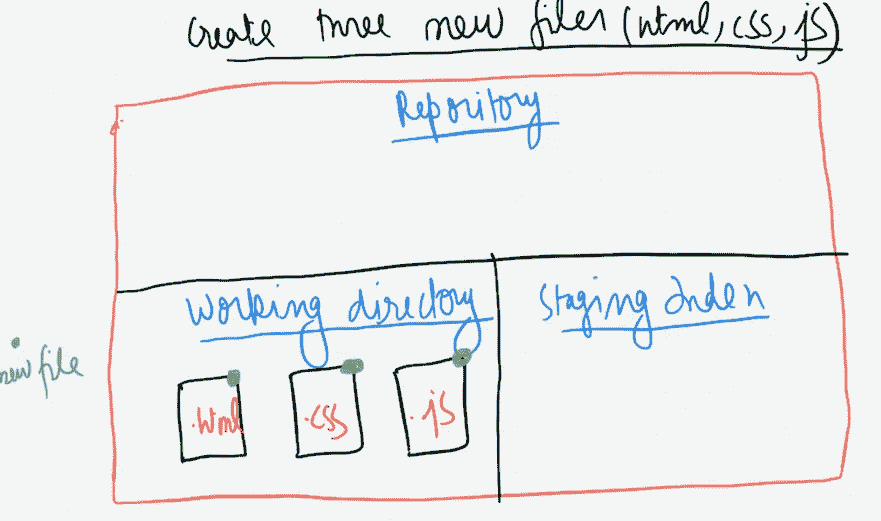 create three new files (html, css, js)
Repository
Working directory
Staging Index
new file
.html
.css
.js